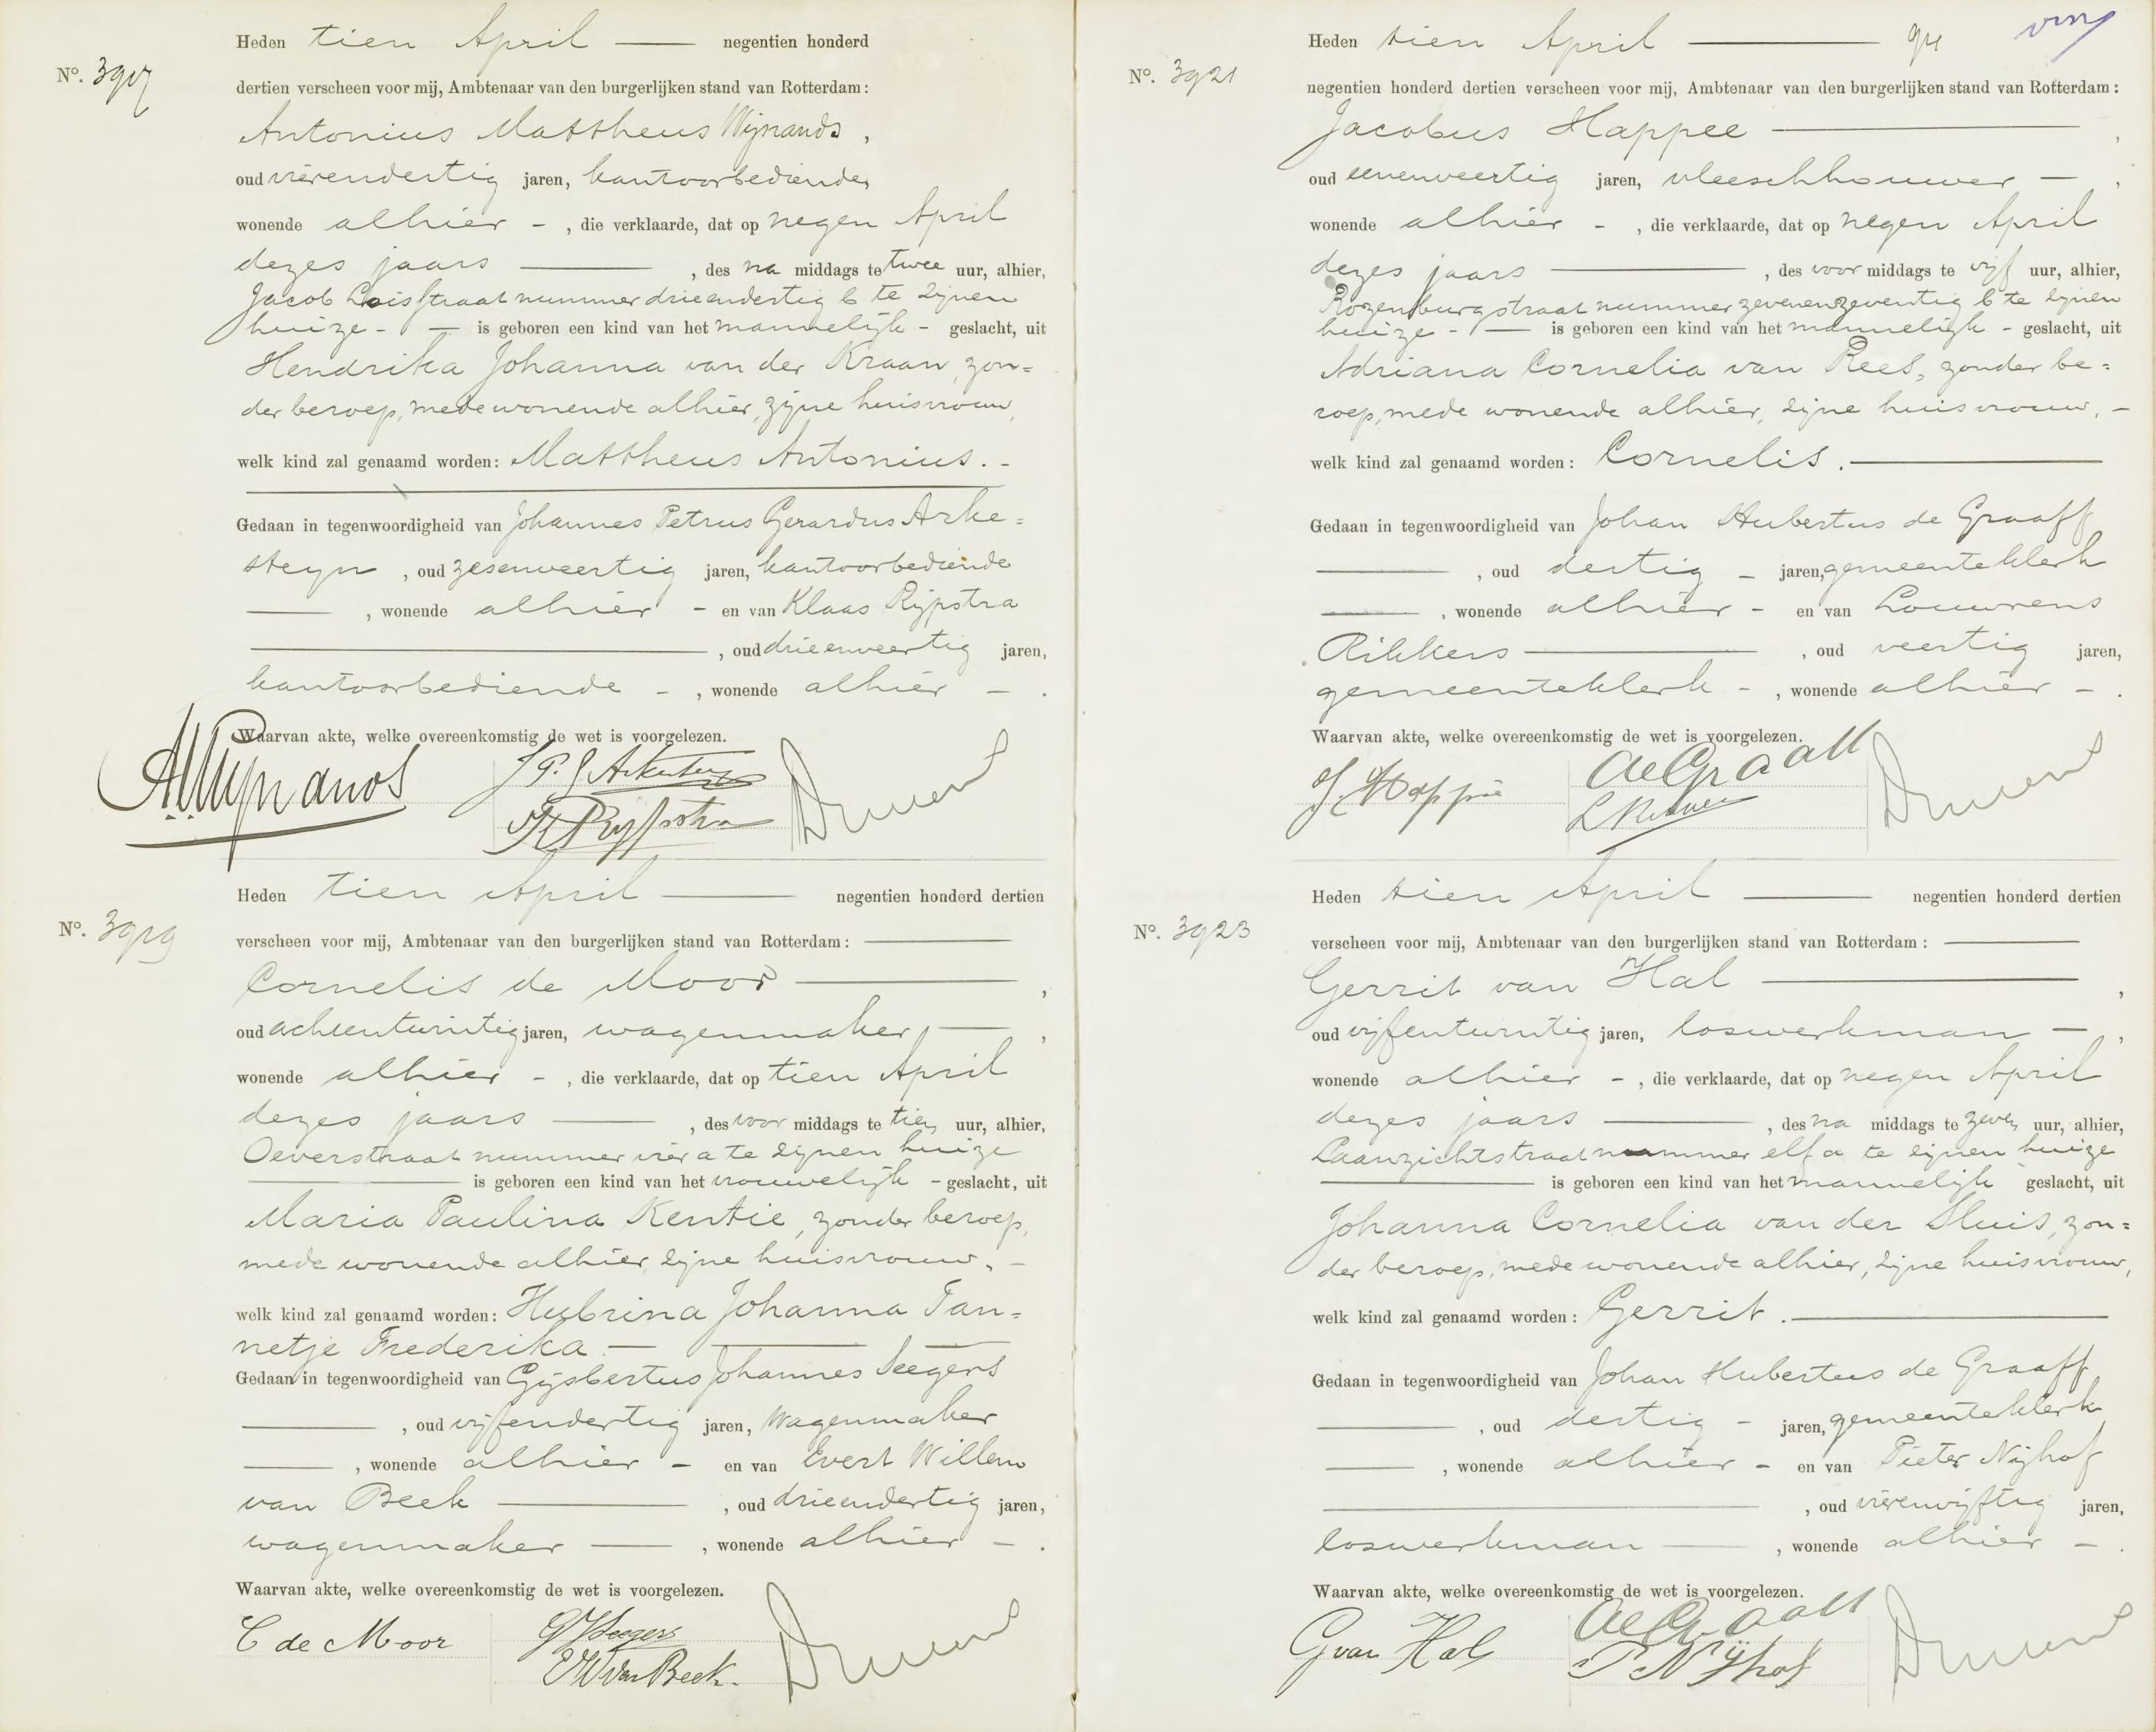 Heden tien April — negentien honderd
Nº. 3917
dertien verscheen voor mij, Ambtenaar van den burgerlijken stand van Rotterdam:
Antonius Mattheus Wijnands,
oud vierendertig jaren, kantoorbediende,
wonende alhier -, die verklaarde, dat op negen April
dezes jaars —, des na middags te twee uur, alhier,
Jacob Loisstraat nummer drieendertig b te zijnen
huize - — is geboren een kind van het mannelijk - geslacht, uit
Hendrika Johanna van der Kraan, zon=
der beroep, mede wonende alhier, zijne huisvrouw,
welk kind zal genaamd worden: Mattheus Antonius. -
Gedaan in tegenwoordigheid van Johannes Petrus Gerardus Arke=
steyn, oud zesenveertig jaren, kantoorbediende
—, wonende alhier - en van Klaas Rijpstra
—, oud drieenveertig jaren,
kantoorbediende -, wonende alhier - .
Waarvan akte, welke overeenkomstig de wet is voorgelezen.
AMWijnands J.P.G. Arkesteyn
K Rijpstra
Heden tien April — negentien honderd dertien
Nº. 3919
verscheen voor mij, Ambtenaar van den burgerlijken stand van Rotterdam: —
Cornelis de Moor —,
oud achtentwintig jaren, wagenmaker, —,
wonende alhier -, die verklaarde, dat op tien April
dezes jaars —, des voor middags te tien uur, alhier,
Oeverstraat nummer vier a te zijnen huize
— is geboren een kind van het vrouwelijk - geslacht, uit
Maria Paulina Kentie, zonder beroep,
mede wonende alhier, zijne huisvrouw, -
welk kind zal genaamd worden: Hubrina Johanna Tan=
netje Frederika. —
Gedaan in tegenwoordigheid van Gijsbertus Johannes Seegers
—, oud vijfendertig jaren, wagenmaker
—, wonende alhier - en van Evert Willem
van Beek —, oud drieendertig jaren,
wagenmaker —, wonende alhier - .
Waarvan akte, welke overeenkomstig de wet is voorgelezen.
C de Moor GJSeegers
EW van Beek.
Heden tien April — 94
Nº. 3921
negentien honderd dertien verscheen voor mij, Ambtenaar van den burgerlijken stand van Rotterdam:
Jacobus Happee —,
oud eenenveertig jaren, vleeschhouwer —,
wonende alhier -, die verklaarde, dat op negen April
dezes jaars —, des voor middags te vijf uur, alhier,
Rozenburgstraat nummer zevenenzeventig b te zijnen
huize - — is geboren een kind van het mannelijk - geslacht, uit
Adriana Cornelia van Rees, zonder be=
roep, mede wonende alhier, zijne huisvrouw, -
welk kind zal genaamd worden: Cornelis. —
Gedaan in tegenwoordigheid van Johan Hubertus de Graaff
—, oud dertig - jaren, gemeenteklerk
—, wonende alhier - en van Louwrens
Rikkers —, oud veertig jaren,
gemeenteklerk -, wonende alhier - .
Waarvan akte, welke overeenkomstig de wet is voorgelezen.
J. Happee de Graaff
L Rikkers
Heden tien April — negentien honderd dertien
Nº. 3923
verscheen voor mij, Ambtenaar van den burgerlijken stand van Rotterdam: —
Gerrit van Hal —,
oud vijfentwintig jaren, loswerkman —,
wonende alhier -, die verklaarde, dat op negen April
dezes jaars —, des na middags te zeven uur, alhier,
Laanzichtstraat nummer elf a te zijnen huize
— is geboren een kind van het mannelijk geslacht, uit
Johanna Cornelia van der Sluis, zon=
der beroep, mede wonende alhier, zijne huisvrouw,
welk kind zal genaamd worden: Gerrit. —
Gedaan in tegenwoordigheid van Johan Hubertus de Graaff
—, oud dertig - jaren, gemeenteklerk
—, wonende alhier - en van Pieter Nijhof
—, oud vierenvijftig jaren,
loswerkman —, wonende alhier - .
Waarvan akte, welke overeenkomstig de wet is voorgelezen.
G van Hal de Graaff
P Nijhof